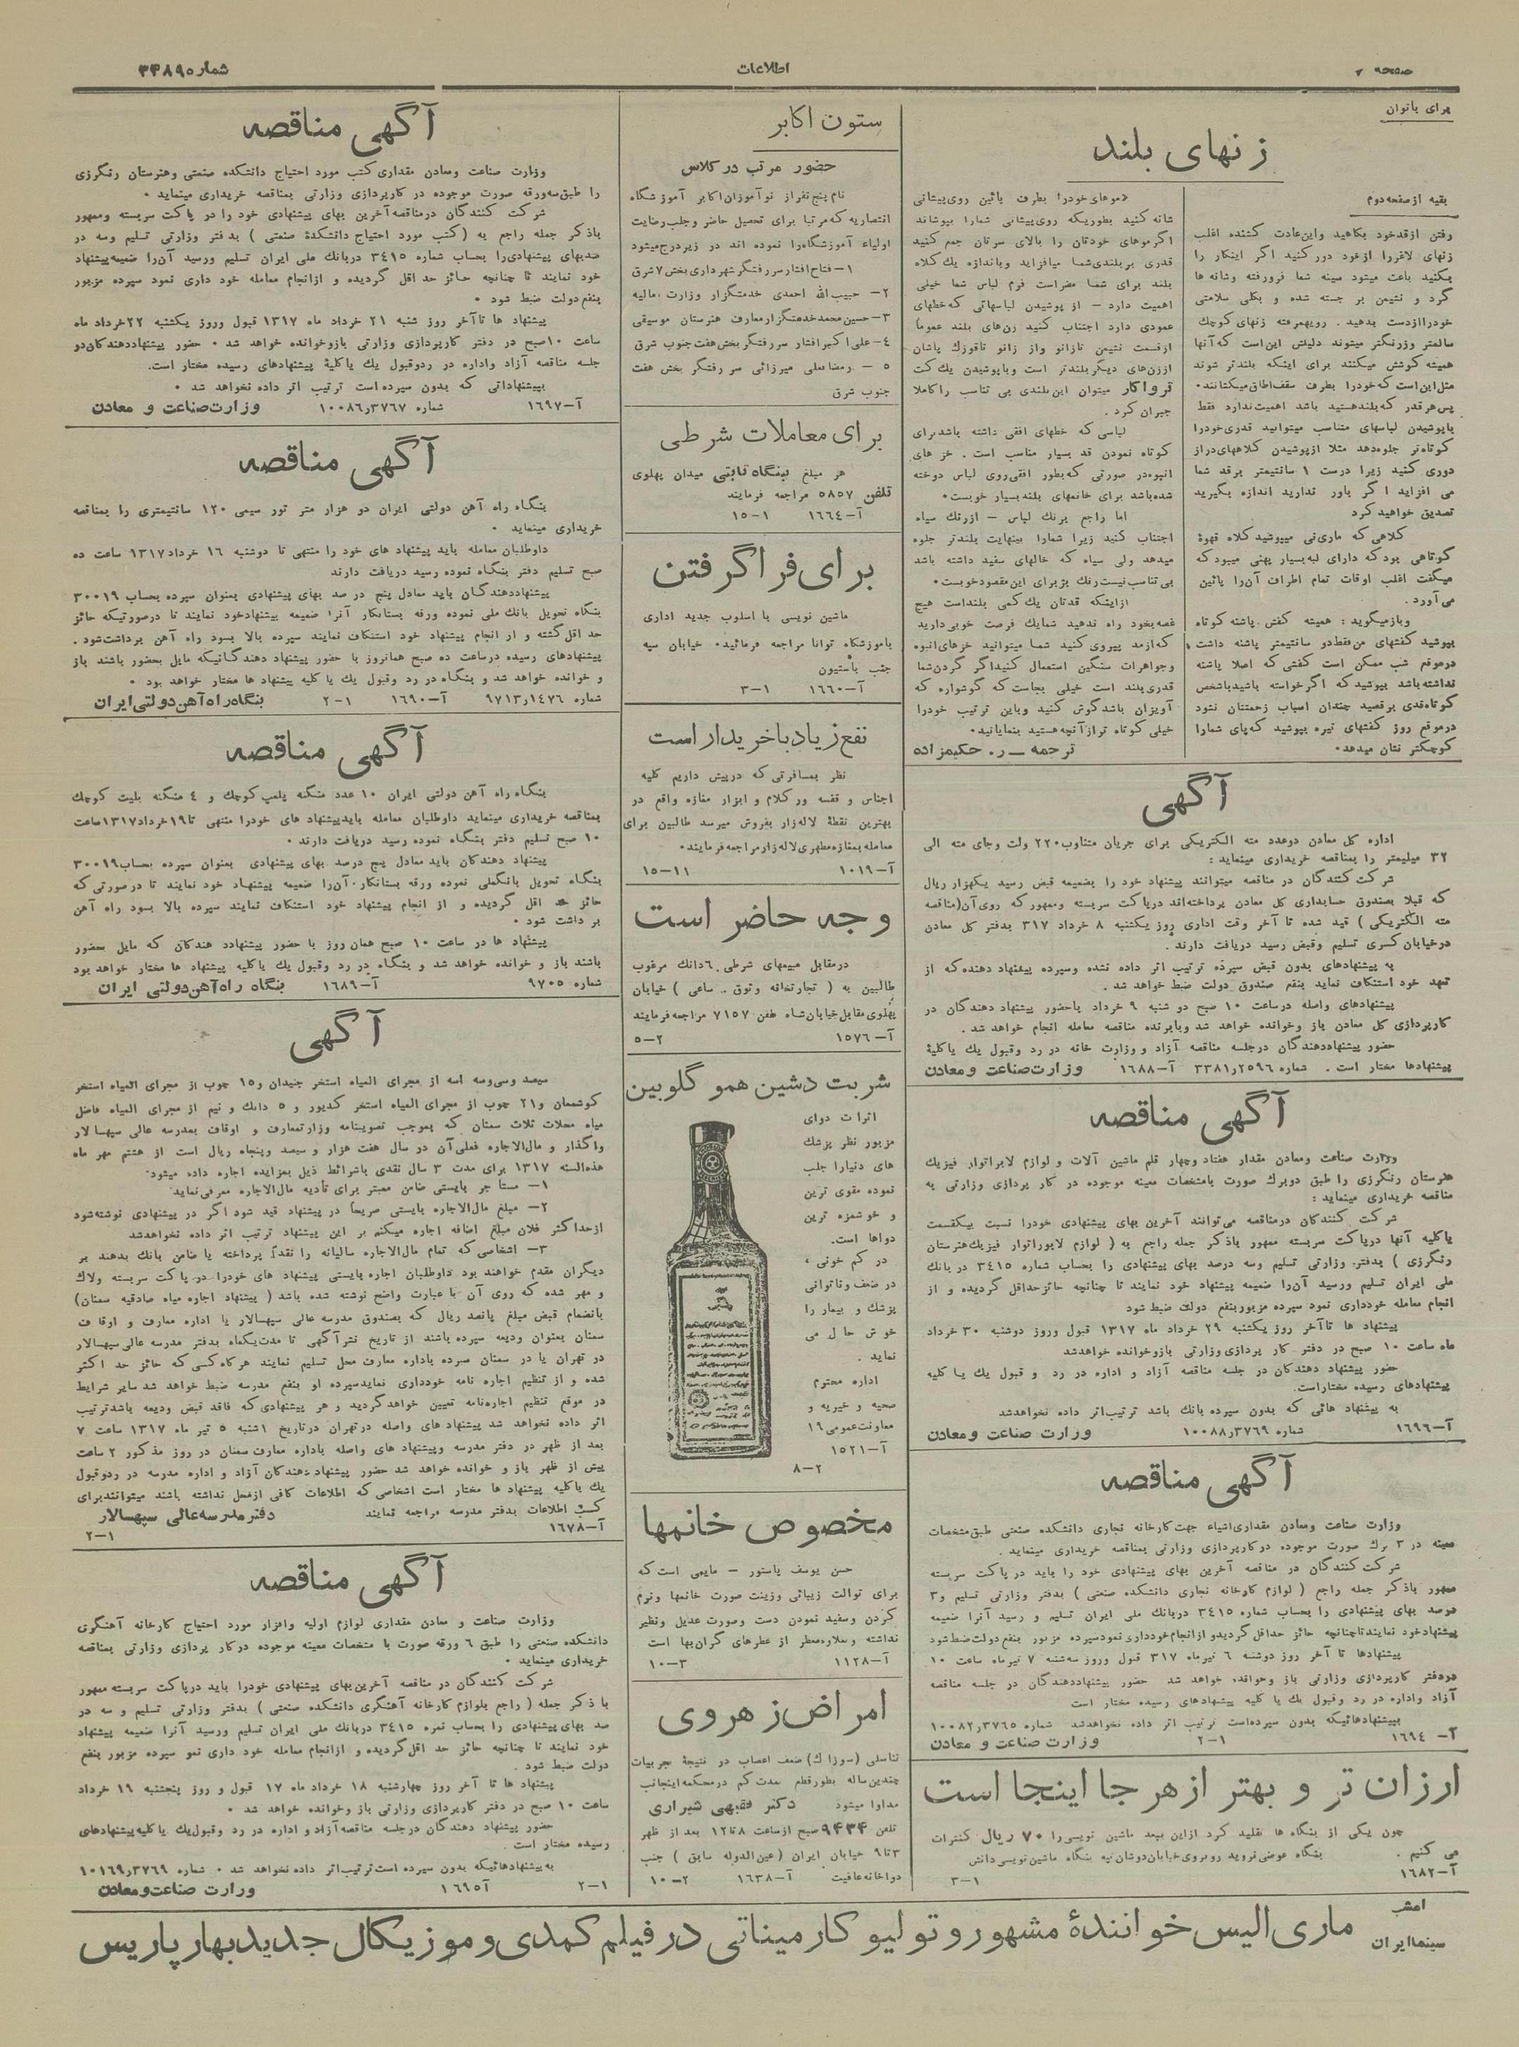 صفحه ۷
اطلاعات
شماره ۳۴۸۹۰
برای بانوان
زنهای بلند
بقیه از صفحه دوم
رفتن از قد خود بکاهید و این عادت کشنده اغلب
زنهای لاغر را از خود دور کنید اگر اینکار را
بکنید باعث میشود سینه شما فرو رفته و شانه ها
گرد و نشیمن بر جسته شده و بکلی سلامتی
خود را از دست بدهید . رویهمرفته زنهای کوچک
سالمتر و زرنگتر میشوند دلیلش این است که آنها
همیشه کوشش میکنند برای اینکه بلندتر شوند
مثل این است که خود را بطرف سقف اطاق میکشانند .
پس هر قدر که بلند هستید باشد اهمیت ندارد فقط
با پوشیدن لباسهای متناسب میتوانید قدری خود را
کوتاه تر جلوه دهد مثلا از پوشیدن کلاههای دراز
دوری کنید زیرا درست ۱ سانتیمتر بر قد شما
می افزاید اگر باور ندارید اندازه بگیرید
تصدیق خواهید کرد
کلاهی که ماری نی میپوشید کلاه قهوهٔ
کوتاهی بود که دارای لبه بسیار پهنی میبود که
میگفت اغلب اوقات تمام اطراف آن را پائین
می آورد .
و باز میگوید : همیشه کفش پاشنه کوتاه
بپوشید کفشهای من فقط دو سانتیمتر پاشنه داشت
در موقع شب ممکن است کفشی که اصلا پاشنه
نداشته باشد بپوشید که اگر خواسته باشید با شخص
کوتاه قدی برقصید چندان اسباب زحمتتان نشود
در موقع روز کفشهای تیره بپوشید که پای شما را
کوچکتر نشان میدهد .
« موهای خود را بطرف پائین روی پیشانی
شانه کنید بطوریکه روی پیشانی شما را بپوشاند
اگر موهای خودتان را بالای سرتان جمع کنید
قدری بر بلندی شما میافزاید و باندازه یک کلاه
بلند برای شما مضر است فرم لباس شما خیلی
اهمیت دارد – از پوشیدن لباسهائی که خطهای
عمودی دارد اجتناب کنید زن های بلند عموماً
از قسمت نشیمن تا زانو و از زانو تا قوزک پاشان
از زن های دیگر بلندتر است و با پوشیدن یک کت
ترواکار میتوان این بلندی بی تناسب را کاملا
جبران کرد .
لباسی که خطهای افقی داشته باشد برای
کوتاه نمودن قد بسیار مناسب است . خز های
انبوه در صورتی که بطور افقی روی لباس دوخته
شده باشد برای خانمهای بلند بسیار خوبست .
اما راجع برنگ لباس – از رنگ سیاه
اجتناب کنید زیرا شما را بینهایت بلندتر جلوه
میدهد ولی سیاه که خالهای سفید داشته باشد
بی تناسب نیست رنگ بژ برای این مقصود خوبست .
از اینکه قدتان یک کمی بلند است هیچ
غصه بخود راه ندهید شما یک فرصت خوبی دارید
که از مد پیروی کنید شما میتوانید خزهای انبوه
و جواهرات سنگین استعمال کنید اگر گردن شما
قدری بلند است خیلی بجاست که گوشواره که
آویزان باشد گوش کنید و باین ترتیب خود را
خیلی کوتاه تر از آنچه هستید بنمایانید .
ترجمه – ر. حکیمزاده
آگهی
اداره کل معادن دو عدد مته الکتریکی برای جریان متناوب ۲۲۰ ولت و جای مته الی
۳۲ میلیمتر را بمناقصه خریداری مینماید :
شرکت کنندگان در مناقصه میتوانند پیشنهاد خود را بضمیمه قبض رسید یکهزار ریال
که قبلا بصندوق حسابداری کل معادن پرداخته اند در پاکت سربسته و ممهور که روی آن (مناقصه
مته الکتریکی) قید شده تا آخر وقت اداری روز یکشنبه ۸ خرداد ۳۱۷ بدفتر کل معادن
در خیابان کسری تسلیم و قبض رسید دریافت دارند .
به پیشنهادهای بدون قبض سپرده ترتیب اثر داده نشده و سپرده پیشنهاد دهنده که از
تعهد خود استنکاف نماید بنفع صندوق دولت ضبط خواهد شد .
پیشنهادهای واصله در ساعت ۱۰ صبح دو شنبه ۹ خرداد با حضور پیشنهاد دهندگان در
کارپردازی کل معادن باز و خوانده خواهد شد و با برنده مناقصه معامله انجام خواهد شد .
حضور پیشنهاد دهندگان در جلسه مناقصه آزاد و وزارت خانه در رد و قبول یک یا کلیهٔ
پیشنهادها مختار است . شماره ۲۵۹۶ر۳۳۸۱ آ–۱۶۸۸ وزارت صناعت و معادن
آگهی مناقصه
وزارت صناعت و معادن مقدار هفتاد و چهار قلم ماشین آلات و لوازم لابراتوار فیزیک
هنرستان رنگرزی را طبق دو برگ صورت با مشخصات معینه موجوده در کار پردازی وزارتی به
مناقصه خریداری مینماید :
شرکت کنندگان در مناقصه می‌توانند آخرین بهای پیشنهادی خود را نسبت بیکقسمت
یا کلیه آنها در پاکت سربسته ممهور با ذکر جمله راجع به ( لوازم لابوراتوار فیزیک هنرستان
رنگرزی ) بدفتر وزارتی تسلیم و سه درصد بهای پیشنهادی را بحساب شماره ۳۴۱۵ در بانک
ملی ایران تسلیم و رسید آن را ضمیمه پیشنهاد خود نمایند تا چنانچه حائز حد اقل گردیده و از
انجام معامله خودداری نمود سپرده مزبور بنفع دولت ضبط شود
پیشنهاد ها تا آخر روز یکشنبه ۲۹ خرداد ماه ۱۳۱۷ قبول و روز دوشنبه ۳۰ خرداد
ماه ساعت ۱۰ صبح در دفتر کار پردازی وزارتی باز و خوانده خواهد شد
حضور پیشنهاد دهندگان در جلسه مناقصه آزاد و اداره در رد و قبول یک یا کلیه
پیشنهادهای رسیده مختار است.
به پیشنهاد هائی که بدون سپرده بانک باشد ترتیب اثر داده نخواهد شد
آ–۱۶۹۶ شماره ۳۷۶۹ر۱۰۰۸۸ وزارت صناعت و معادن
آگهی مناقصه
وزارت صناعت و معادن مقداری اشیاء جهت کارخانه نجاری دانشکده صنعتی طبق مشخصات
معینه در ۳ برگ صورت موجوده در کارپردازی وزارتی بمناقصه خریداری مینماید .
شرکت کنندگان در مناقصه آخرین بهای پیشنهادی خود را باید در پاکت سربسته
ممهور با ذکر جمله راجع ( لوازم کارخانه نجاری دانشکده صنعتی ) بدفتر وزارتی تسلیم و ۳
درصد بهای پیشنهادی را بحساب شماره ۳۴۱۵ در بانک ملی ایران تسلیم و رسید آنرا ضمیمه
پیشنهاد خود نمایند تا چنانچه حائز حداقل گردید و از انجام خودداری نمود سپرده مزبور بنفع دولت ضبط شود
پیشنهادها تا آخر روز دوشنبه ۶ تیر ماه ۳۱۷ قبول و روز سه شنبه ۷ تیر ماه ساعت ۱۰
در دفتر کارپردازی وزارتی باز و خوانده خواهد شد حضور پیشنهاد دهندگان در جلسه مناقصه
آزاد و اداره در رد و قبول یک یا کلیه پیشنهادهای رسیده مختار است
بپیشنهادهائیکه بدون سپرده است ترتیب اثر داده نخواهد شد شماره ۳۷۶۵ر۱۰۰۸۲
آ– ۱۶۹۴ ۱–۲ وزارت صناعت و معادن
ارزان تر و بهتر از هر جا اینجا است
چون یکی از بنگاه ها تقلید کرد از این ببعد ماشین نویسی را ۷۰ ریال کنترات
می کنیم . بنگاه عوضی نروید روبروی خیابان دوشان تپه بنگاه ماشین نویسی دانش
آ–۱۶۸۲ ۱–۳
ستون اکابر
حضور مرتب در کلاس
نام پنج نفر از نو آموزان اکابر آموزشگاه
انتصاریه که مرتبا برای تحصیل حاضر و جلب رضایت
اولیاء آموزشگاه را نموده اند در زیر درج میشود
۱– فتاح افشار سر رفتگر شهرداری بخش ۷ شرق
۲– حبیب الله احمدی خدمتگزار وزارت مالیه
۳–حسین محمد خدمتگزار معارف هنرستان موسیقی
۴–علی اکبر افشار سر رفتگر بخش هفت جنوب شرق
۵ – رمضانعلی میرزائی سر رفتگر بخش هفت
جنوب شرق
برای معاملات شرطی
هر مبلغ بنگاه ثابتی میدان پهلوی
تلفن ۵۸۵۷ مراجعه فرمایند
آ–۱۶۶۴ ۱–۱۵
برای فرا گرفتن
ماشین نویسی با اسلوب جدید اداری
بآموزشگاه توانا مراجعه فرمائید . خیابان سپه
جنب باستیون
آ–۱۶۶۰ ۱–۳
نفع زیاد با خریدار است
نظر بمسافرتی که در پیش داریم کلیه
اجناس و قفسه و رکلام و ابزار مغازه واقع در
بهترین نقطهٔ لاله زار بفروش میرسد طالبین برای
معامله بمغازه مظهری لاله زار مراجعه فرمایند .
آ–۱۰۱۹ ۱۱–۱۵
وجه حاضر است
در مقابل مبیعهای شرطی ۶ دانگ مرغوب
طالبین به ( تجارتخانه وثوق . ساعی ) خیابان
پهلوی مقابل خیابان شاه تلفن ۷۱۵۷ مراجعه فرمایند
آ–۱۵۷۶ ۲–۵
شربت دشین همو گلوبین
اثرات دوای
مزبور نظر پزشک
های دنیا را جلب
نموده مقوی ترین
و خوشمزه ترین
دواها است.
در کم خونی ،
در ضعف و ناتوانی
پزشک و بیمار را
خوش حال می
نماید .
اداره محترم
صحیه و خیریه و
معاونت عمومی ۱۹
آ–۱۵۲۱
۲–۸
مخصوص خانمها
حسن یوسف پاستور – مایعی است که
برای توالت زیبائی وزینت صورت خانمها و نرم
کردن و سفید نمودن دست و صورت عدیل و نظیر
نداشته و بعلاوه معطر از عطرهای گران بها است
آ–۱۱۲۸ ۳–۱۰
امراض زهروی
تناسلی (سوزاک) ضعف اعصاب در نتیجهٔ تجربیات
چندین ساله بطور قطع بمدت کم در محکمه اینجانب
مداوا میشود دکتر فقیهی شیرازی
تلفن ۹۴۳۴ صبح از ساعت ۸ تا ۱۲ بعد از ظهر
۳ تا ۹ خیابان ایران (عین الدوله سابق) جنب
دواخانه عافیت آ–۱۶۳۸ ۲–۱۰
آگهی مناقصه
وزارت صناعت ومعادن مقداری کتب مورد احتیاج دانشکده صنعتی وهنرستان رنگرزی
را طبق سه ورقه صورت موجوده در کارپردازی وزارتی بمناقصه خریداری مینماید .
شرکت کنندگان در مناقصه آخرین بهای پیشنهادی خود را در پاکت سربسته وممهور
باذکر جمله راجع به (کتب مورد احتیاج دانشکدهٔ صنعتی) بدفتر وزارتی تسلیم وسه در
صد بهای پیشنهادی را بحساب شماره ۳۴۱۵ در بانک ملی ایران تسلیم ورسید آن را ضمیمه پیشنهاد
خود نمایند تا چنانچه حائز حد اقل گردیده و از انجام معامله خود داری نمود سپرده مزبور
بنفع دولت ضبط شود .
پیشنهاد ها تا آخر روز شنبه ۲۱ خرداد ماه ۱۳۱۷ قبول وروز یکشنبه ۲۲ خرداد ماه
ساعت ۱۰ صبح در دفتر کارپردازی وزارتی بازو خوانده خواهد شد . حضور پیشنهاد دهندگان در
جلسه مناقصه آزاد واداره در رد وقبول یک یا کلیهٔ پیشنهادهای رسیده مختار است.
بپیشنهاداتی که بدون سپرده است ترتیب اثر داده نخواهد شد .
آ–۱۶۹۷ شماره ۳۷۶۷ر۱۰۰۸۶ وزارت صناعت و معادن
آگهی مناقصه
بنگاه راه آهن دولتی ایران دو هزار متر تور سیمی ۱۲۰ سانتیمتری را بمناقصه
خریداری مینماید .
داوطلبان معامله باید پیشنهاد های خود را منتهی تا دوشنبه ۱۶ خرداد ۱۳۱۷ ساعت ده
صبح تسلیم دفتر بنگاه نموده رسید دریافت دارند
پیشنهاد دهندگان باید معادل پنج در صد بهای پیشنهادی بعنوان سپرده بحساب ۳۰۰۱۹
بنگاه تحویل بانک ملی نموده ورقه بستانکار آنرا ضمیمه پیشنهاد خود نمایند تا در صورتیکه حائز
حد اقل گشته و از انجام پیشنهاد خود استنکاف نمایند سپرده بالا بسود راه آهن برداشت شود .
پیشنهادهای رسیده در ساعت ده صبح همانروز با حضور پیشنهاد دهندگانیکه مایل بحضور باشند باز
و خوانده خواهد شد و بنگاه در رد وقبول یک یا کلیه پیشنهاد ها مختار خواهد بود .
شماره ۱۴۷۶ر۹۷۱۳ آ–۱۶۹۰ ۱–۲ بنگاه راه آهن دولتی ایران
آگهی مناقصه
بنگاه راه آهن دولتی ایران ۱۰ عدد منگنه پلمپ کوچک و ۴ منگنه بلیت کوچک
بمناقصه خریداری مینماید داوطلبان معامله باید پیشنهاد های خود را منتهی تا ۱۹ خرداد ۱۳۱۷ ساعت
۱۰ صبح تسلیم دفتر بنگاه نموده رسید دریافت دارند .
پیشنهاد دهندگان باید معادل پنج درصد بهای پیشنهادی بعنوان سپرده بحساب ۳۰۰۱۹
بنگاه تحویل بانکملی نموده ورقه بستانکار آن را ضمیمه پیشنهاد خود نمایند تا در صورتی که
حائز حد اقل گردیده و از انجام پیشنهاد خود استنکاف نمایند سپرده بالا بسود راه آهن
بر داشت شود .
پیشنهاد ها در ساعت ۱۰ صبح همان روز با حضور پیشنهاد دهندگان که مایل بحضور
باشند باز و خوانده خواهد شد و بنگاه در رد وقبول یک یا کلیه پیشنهاد ها مختار خواهد بود
شماره ۹۷۰۵ آ–۱۶۸۹ بنگاه راه آهن دولتی ایران
آگهی
سیصد وسی وسه اسه از مجرای المیاه استخر جنیدان و ۱۵ چوب از مجرای المیاه استخر
کوشمغان و ۲۱ چوب از مجرای المیاه استخر کدیور و ۵ دانگ و نیم از مجرای المیاه فاضل
میاه محلات ثلاث سمنان که بموجب تصویبنامه وزارتمعارف و اوقاف بمدرسه عالی سپهسالار
واگذار و مال الاجاره فعلی آن در سال هفت هزار و سیصد وپنجاه ریال است از هشتم مهر ماه
هذه السنه ۱۳۱۷ برای مدت ۳ سال نقدی باشرائط ذیل بمزایده اجاره داده میشود .
۱– مستأجر بایستی ضامن معتبر برای تأدیه مال الاجاره معرفی نماید .
۲– مبلغ مال الاجاره بایستی صریحاً در پیشنهاد قید شود اگر در پیشنهادی نوشته شود
از حداکثر فلان مبلغ اضافه اجاره میکنم بر این پیشنهاد ترتیب اثر داده نخواهد شد
۳– اشخاصی که تمام مال الاجاره سالیانه را نقداً پرداخته یا ضامن بانک بدهند بر
دیگران مقدم خواهند بود داوطلبان اجاره بایستی پیشنهاد های خود را در پاکت سربسته ولاک
و مهر شده که روی آن با عبارت واضح نوشته شده باشد ( پیشنهاد اجاره میاه صادقیه سمنان)
بانضمام قبض مبلغ پانصد ریال که بصندوق مدرسه عالی سپهسالار یا اداره معارف و اوقاف
سمنان بعنوان ودیعه سپرده باشند از تاریخ نشر آگهی تا مدت یکماه بدفتر مدرسه عالی سپهسالار
در تهران یا در سمنان سپرده باداره معارف محل تسلیم نمایند هر گاه کسی که حائز حد اکثر
شده و از تنظیم اجاره نامه خودداری نماید سپرده او بنفع مدرسه ضبط خواهد شد سایر شرایط
در موقع تنظیم اجاره نامه تعیین خواهد گردید و هر پیشنهادی که فاقد قبض ودیعه باشد ترتیب
اثر داده نخواهد شد پیشنهاد های واصله در تهران در تاریخ ۱شنبه ۵ تیر ماه ۱۳۱۷ ساعت ۷
بعد از ظهر در دفتر مدرسه وپیشنهاد های واصله باداره معارف سمنان در روز مذکور ۲ ساعت
پیش از ظهر باز و خوانده خواهد شد حضور پیشنهاد دهندگان آزاد و اداره مدرسه در رد وقبول
یک یا کلیه پیشنهاد ها مختار است اشخاصی که اطلاعات کافی از محل نداشته باشند میتوانند برای
کسب اطلاعات بدفتر مدرسه مراجعه نمایند دفتر مدرسه عالی سپهسالار
آ–۱۶۷۸ ۱–۲
آگهی مناقصه
وزارت صناعت و معادن مقداری لوازم اولیه وافزار مورد احتیاج کارخانه آهنگری
دانشکده صنعتی را طبق ۶ ورقه صورت با مشخصات معینه موجوده در کار پردازی وزارتی بمناقصه
خریداری مینماید .
شرکت کنندگان در مناقصه آخرین بهای پیشنهادی خود را باید در پاکت سربسته ممهور
با ذکر جمله ( راجع بلوازم کارخانه آهنگری دانشکده صنعتی ) بدفتر وزارتی تسلیم و سه در
صد بهای پیشنهادی را بحساب نمره ۳۴۱۵ در بانک ملی ایران تسلیم ورسید آنرا ضمیمه پیشنهاد
خود نمایند تا چنانچه حائز حد اقل گردیده و از انجام معامله خود داری نمو سپرده مزبور بنفع
دولت ضبط شود .
پیشنهاد ها تا آخر روز چهارشنبه ۱۸ خرداد ماه ۱۷ قبول و روز پنجشنبه ۱۹ خرداد
ساعت ۱۰ صبح در دفتر کارپردازی وزارتی باز وخوانده خواهد شد .
حضور پیشنهاد دهندگان در جلسه مناقصه آزاد و اداره در رد وقبول یک یا کلیه پیشنهادهای
رسیده مختار است .
به پیشنهادهائیکه بدون سپرده است ترتیب اثر داده نخواهد شد . شماره ۳۷۶۹ر۱۰۱۶۹
۱–۲ آ۱۶۹۵ وزارت صناعت و معادن
امشب
سینما ایران
ماری الیس خوانندهٔ مشهور و تولیو کارمیناتی در فیلم کمدی و موزیکال جدید بهار پاریس